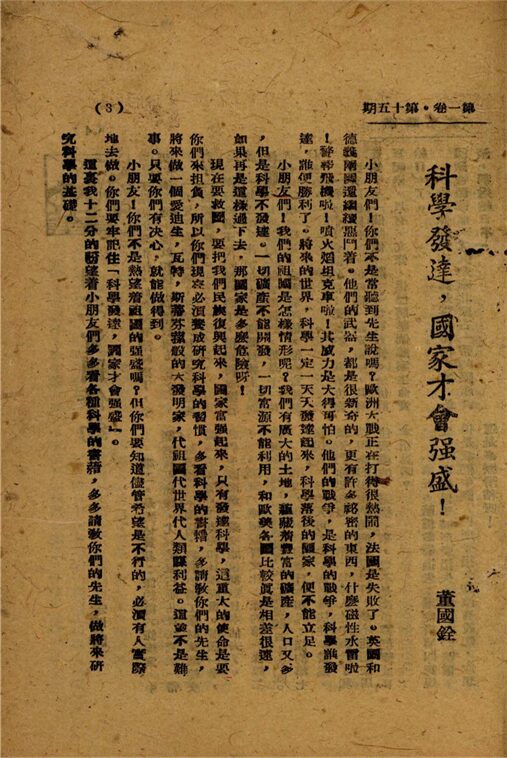 第一卷・第十五期
科學發達，國家才會强盛！
董國銓
小朋友們！你們不是常聽到先生說嗎？歐洲大戰正在打得很熱鬧，法國是失敗了。英國和
德義兩國還繼續惡鬥着。他們的武器 都是很新奇的，更有許多祕密的東西，什麼磁性水雷啦
！飛機啦！噴火焰坦克車啦！其威力是大得可怕。他們的戰爭，是科學的戰爭，科學誰發
達，誰便勝利了。將來的世界，科學一定一天天發達起來，科學落後的國家，便不能立足。
小朋友們！我們的祖國是怎樣情形呢？我們有廣大的土地，蘊藏着豐富的礦產，人口又多
，但是科學不發達。一切礦產不能開發，一切富源不能利用，和歐美各國比較眞是相差很遠，
如果再是這樣過下去，那國家是多麼危險呀！
現在要救國，要把我們民族復興起來，國家富强起來，只有發達科學，這重大的使命是要
你們來担負，所以你們現在必須養成研究科學的習慣，多看科學的書籍，多請教你們的先生，
將來做一個愛迪生，瓦特，斯蒂芬孫般的大發明家，代祖國代世界代人類謀利益。這並不是難
事。只要你們有决心，就能做得到。
小朋友！你們不是熱望着祖國的强盛嗎？但你們要知道儘管希望是不行的，必須有人實際
地去做。你們要牢記住「科學發達，國家才會强盛」。
這裏我十二分的盼望着小朋友們多多看各種科學的書籍，多多請教你們的先生，做將來研
究科學的基礎。
(3)